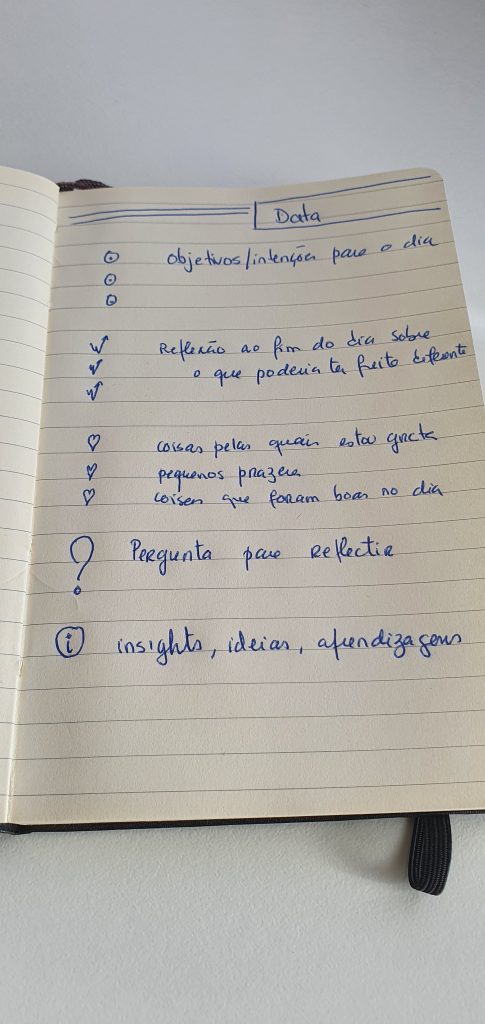 Data
objetivos/intenções para o dia
Reflexão ao fim do dia sobre
o que poderia ter feito diferente
coisas pelas quais estou grata
pequenos prazeres
coisas que foram boas no dia
? Pergunta para reflectir
i insights, ideias, aprendizagens